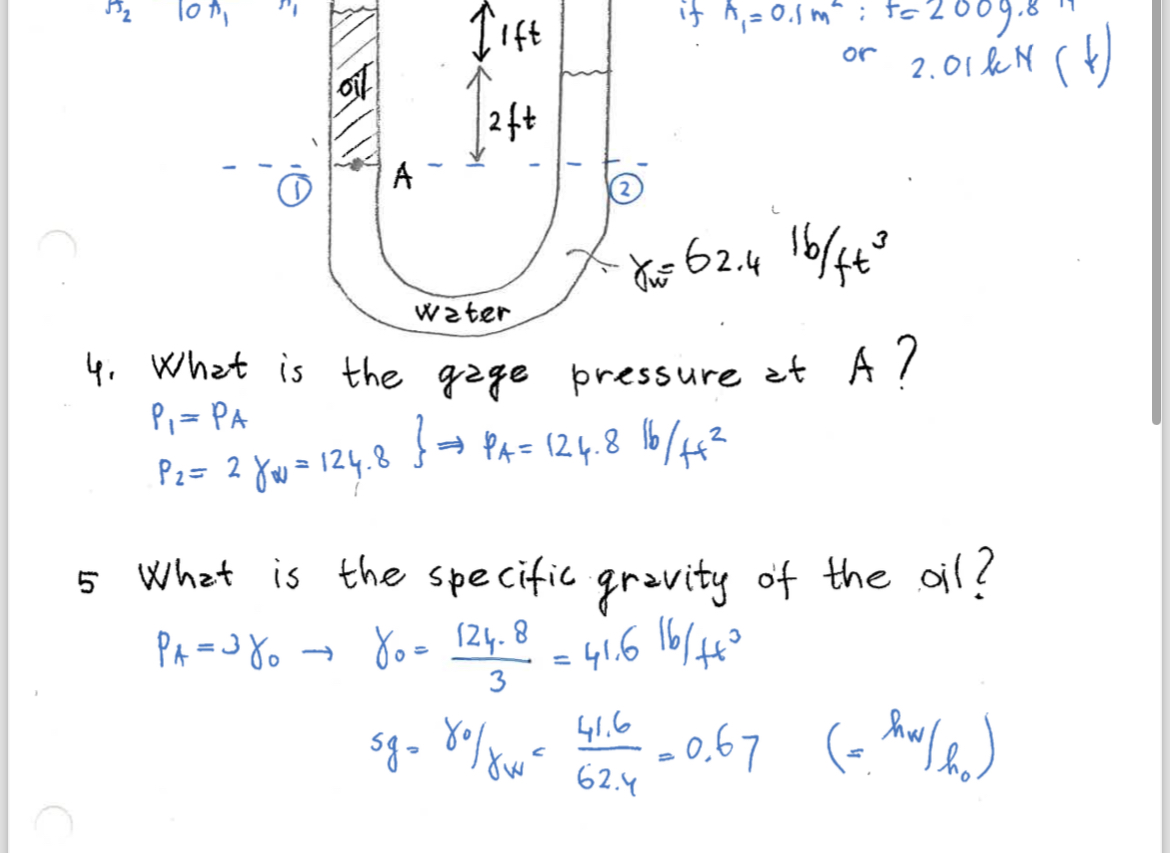 A₂ 10 A₁
if A₁ = 0.1 m² : F = 2009.8 N
or 2.01 kN (↓)
1 ft
oil
2 ft
① A ②
γw = 62.4 lb/ft³
water
4. What is the gage pressure at A?
P₁ = PA
P₂ = 2 γw = 124.8 } ⇒ PA = 124.8 lb/ft²
5 What is the specific gravity of the oil?
PA = 3γo → γo = 124.8/3 = 41.6 lb/ft³
sg = γo/γw = 41.6/62.4 = 0.67 (= hw/ho)